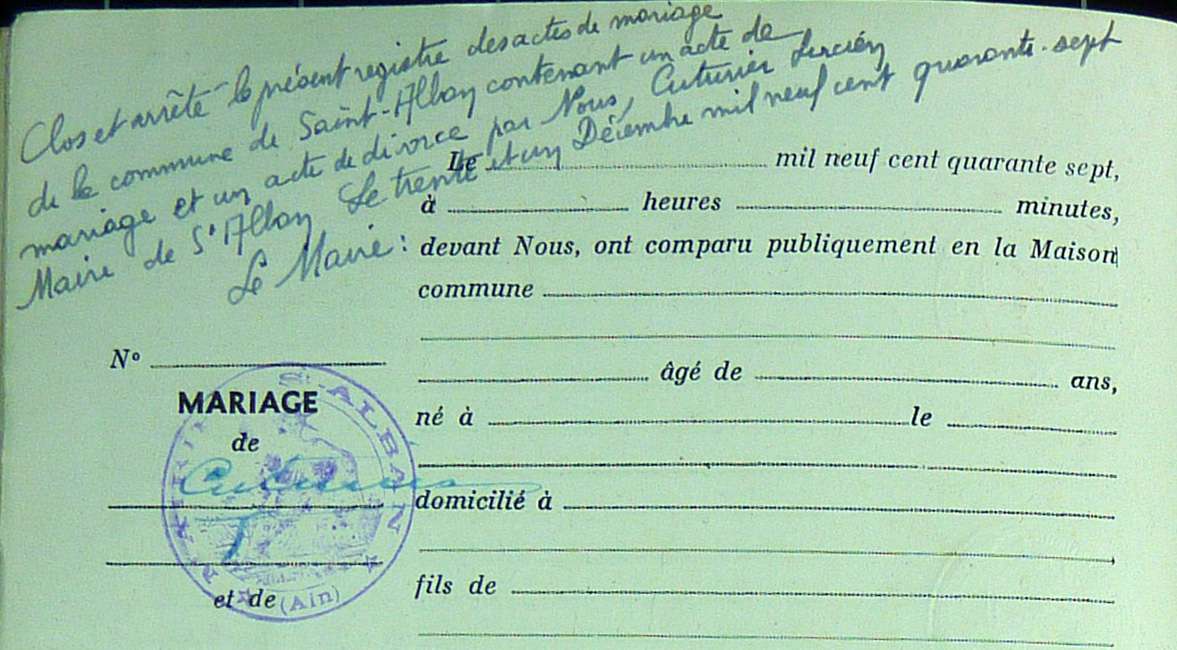 Clos et arrêté le présent registre des actes de mariage
de la commune de Saint-Alban contenant un acte de
mariage et un acte de divorce par Nous, Cuturier Lucien
Maire de St Alban Le trente et un Décembre mil neuf cent quarante-sept
Le Maire :
Le mil neuf cent quarante sept,
à heures minutes,
devant Nous, ont comparu publiquement en la Maison
commune
âgé de ans,
né à le
domicilié à
fils de
No
MARIAGE
de
et de
MAIRIE St ALBAN
(Ain)
Cuturier